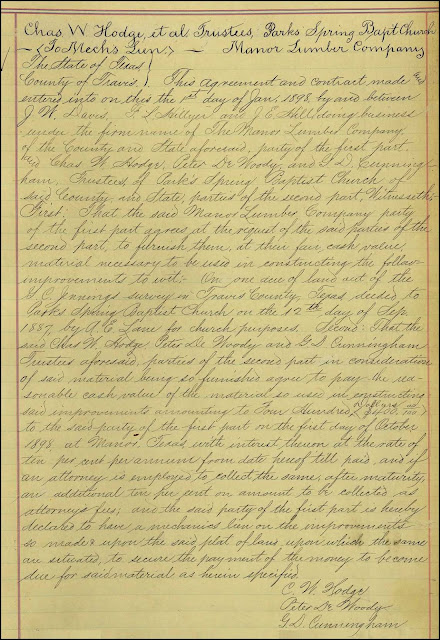 Chas. W. Hodge, et al Trustees, Parks Spring Bapt Church
- {To Mech's Lien.} - Manor Lumber Company
The State of Texas
County of Travis, }. This agreement and contract made and
entered into on this the 1st day of Jan, 1898, by and between
J. W. Davis, F. L. Hillyer and J. E. Hill, doing business
under the firm name of The Manor Lumber Company
of the County and State aforesaid, party of the first part.
and Chas W. Hodge, Peter De Woody, and G. D. Cunning-
ham, Trustees of Park's Spring Baptist Church of
said County and State, parties of the second part, Witnesseth:
First. That the said Manor Lumber Company party
of the first part agrees at the request of the said parties of the
second part, to furnish them, at their fair cash value,
material necessary to be used in constructing the follow-
improvements to wit:- On one acre of land out of the
J. C. Jennings survey in Travis County, Texas deeded to
Parks Spring Baptist Church on the 12th day of Sep.
1887, by A. E. Lane for church purposes. Second: That the
said Chas W. Hodge, Peter De Woody and G. D. Cunningham
Trustees aforesaid, parties of the second part in consideration
of said material being so furnished agree to pay the rea-
sonable cash value of the material so used in constructing
said improvements amounting to Four Hundred
to the said party of the first part on the first day of October
1898, at Manor, Texas, with interest thereon at the rate of
ten per cent per annum from date hereof till paid, and if
an attorney is employed to collect the same, after maturity,
an additional ten per cent on amount to be collected as
attorneys fees; and the said party of the first part is hereby
declared to have a mechanics lien on the improvements
so made & upon the said plat of land, upon which the same
are situated, to secure the payment of the money to become
due for said material as herein specified.
C. W. Hodge
Peter De Woody
G. D. Cunningham